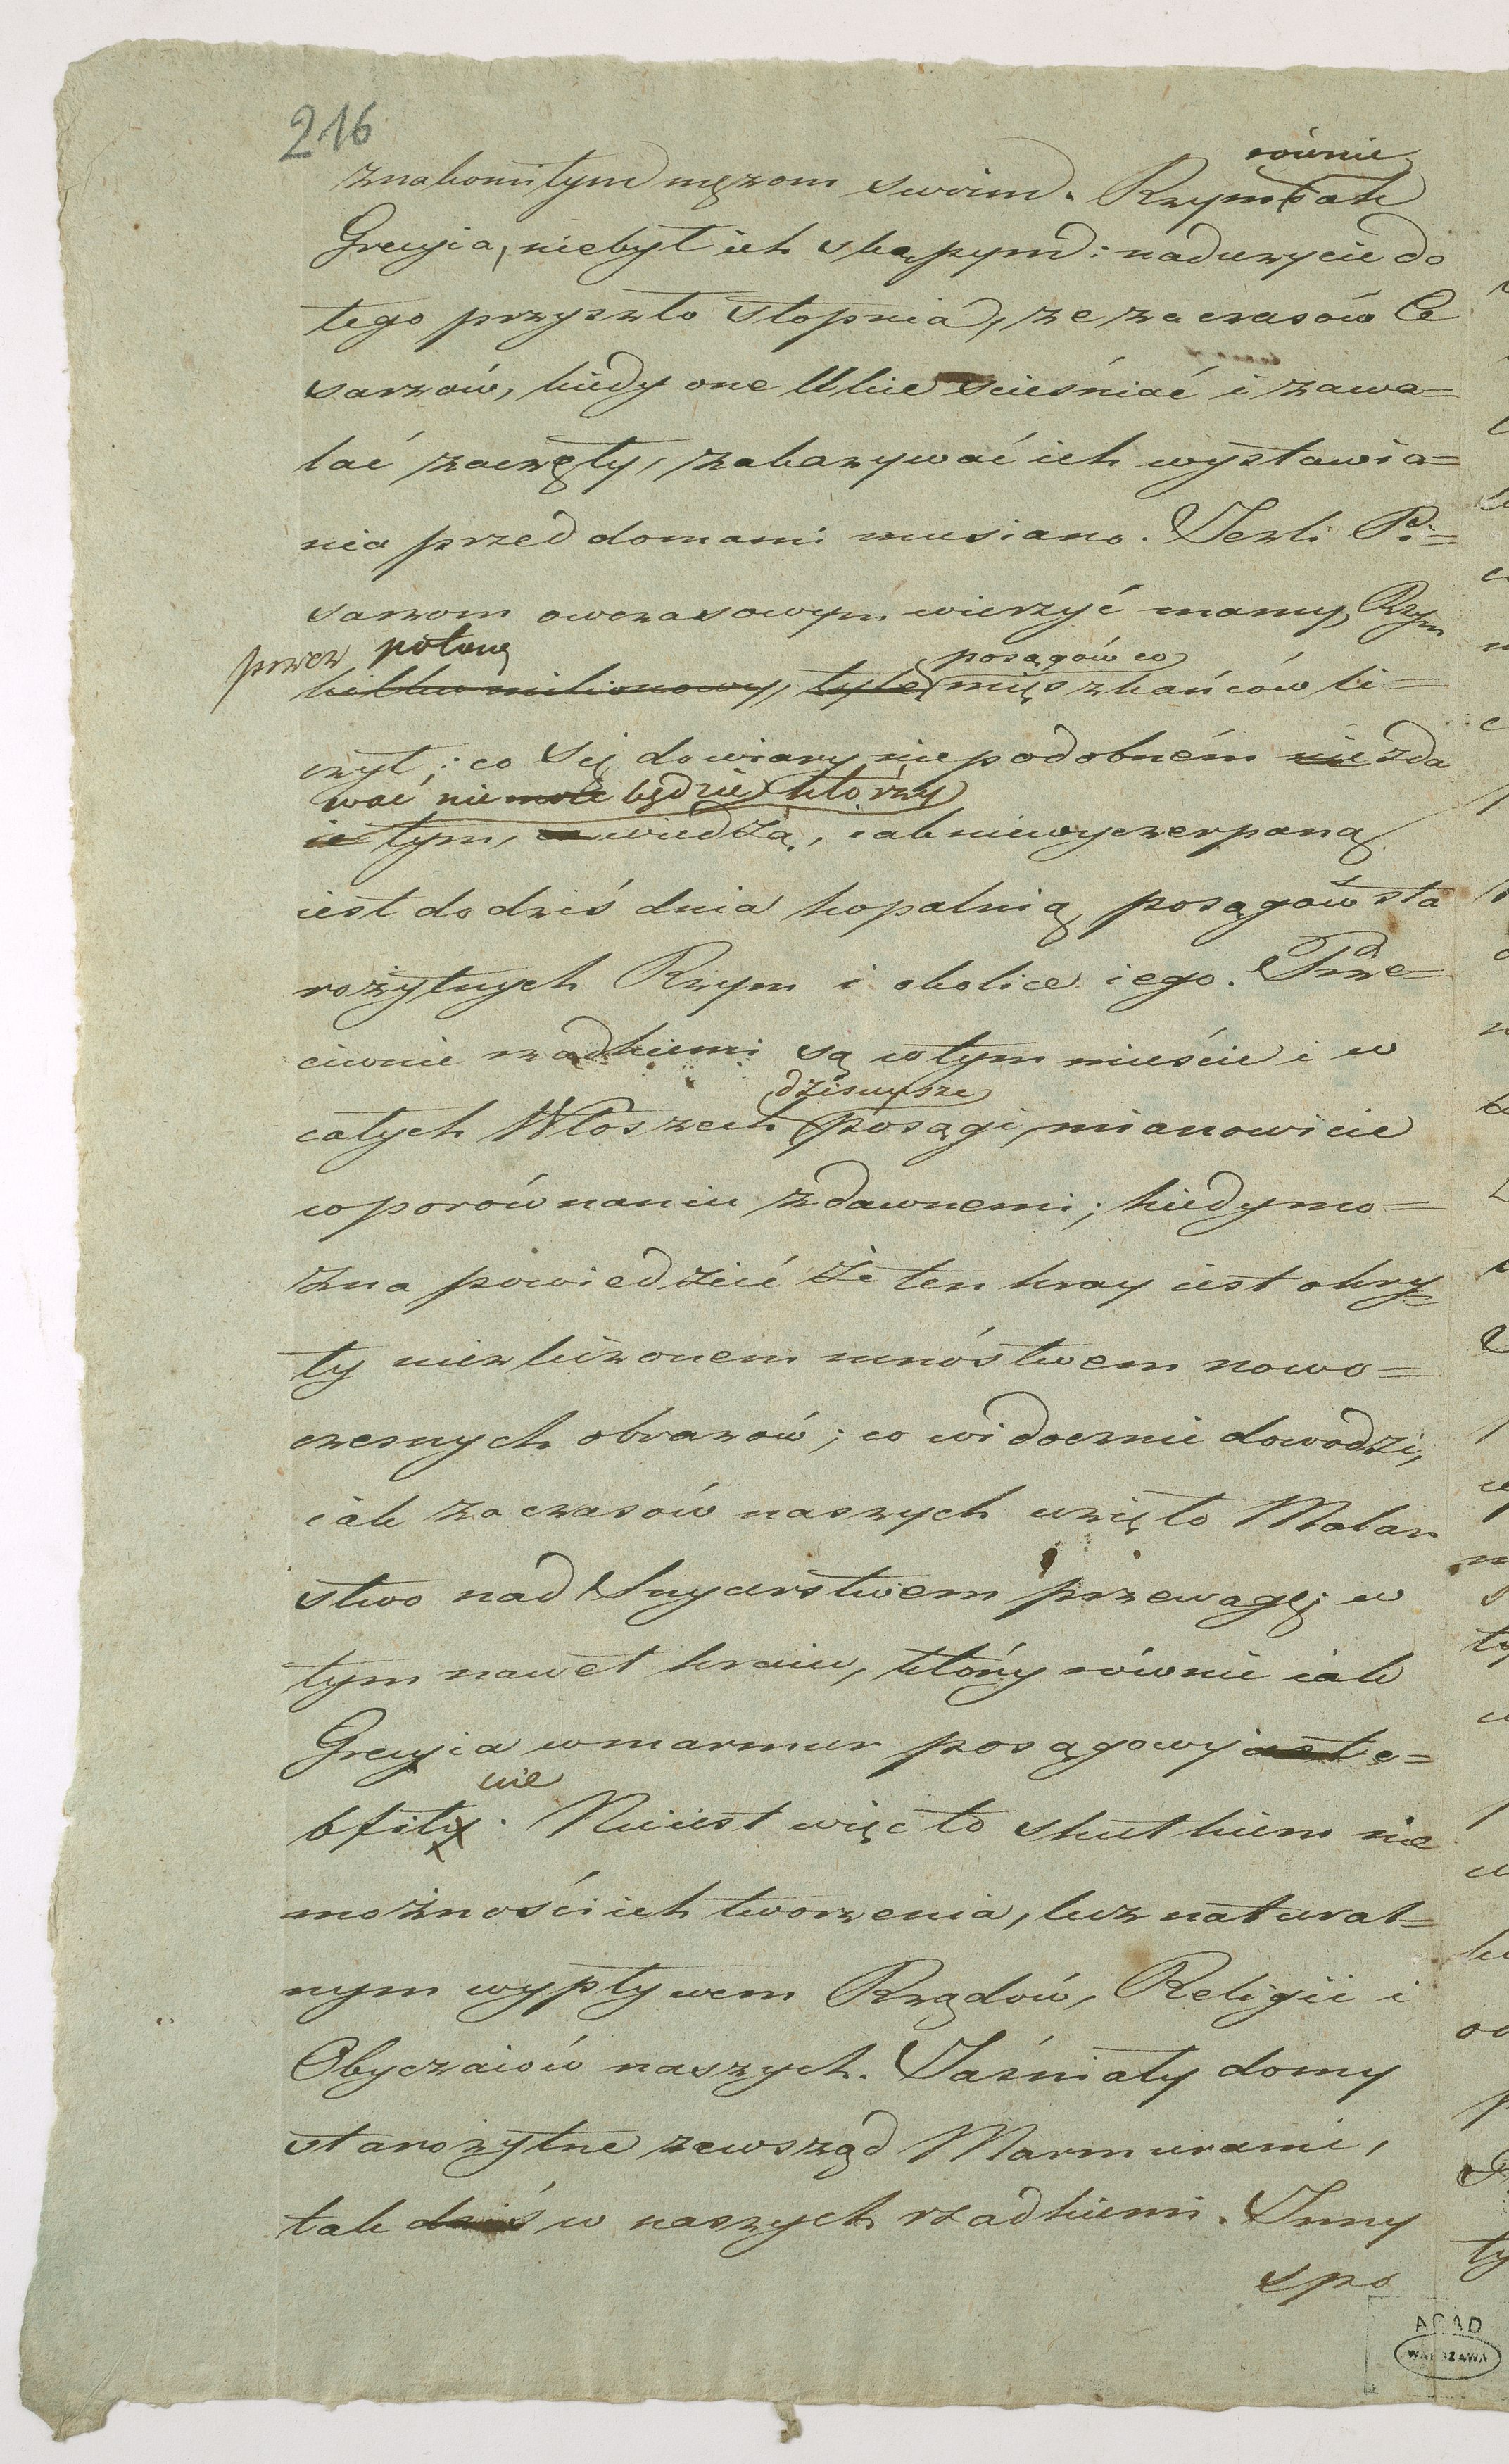 216
równie
znakomitym mężom swoim. Rzym iak
Grecyia, niebył ich skąpym: nadużycie do
tego przyszło stopnia, że za czasów Ce
sarzów, kiedy one Ulice scieśniać i zawa=
lać zaczęły, zakazywać ich wystawia=
nia przed domami musiano. Jeżli Pi=
sarzom owczasowym wierzyć mamy, Rzym
przez połowę posągów co
kilku milionowy, tyle mięszkańców li=
czył; co się do wiary niepodobném nie zda
wać nie może będzie którzy
ie tym, co wiedzą, iak niewyczerpaną
iest do dziś dnia kopalnią posągów sta
rożytnych Rzym i okolice iego. Prze=
ciwnie rzadkiemi są w tym mieście i w
dzisieysze
całych Włoszech posągi, mianowicie
w porównaniu z dawnemi; kiedy mo=
żna powiedzieć że ten kray iest okry=
ty niezliczonem mnóstwem nowo=
czesnych obrazów; co widocznie dowodzi,
iak za czasów naszych wzięło Malar
stwo nad Snycerstwem przewagę; w
tym nawet kraiu, który równie iak
Grecyia w marmur posągowy iest o=
cie
bfity. Nieiest więc to skutkiem nie
możności ich tworzenia, lecz natural=
nym wypływem Rządów, Religii i
Obyczaiów naszych. Jaśniały domy
starożytne zewsząd Marmurami,
tak dziś w naszych rzadkiemi. Inny
spo
AGAD
WARSZAWA